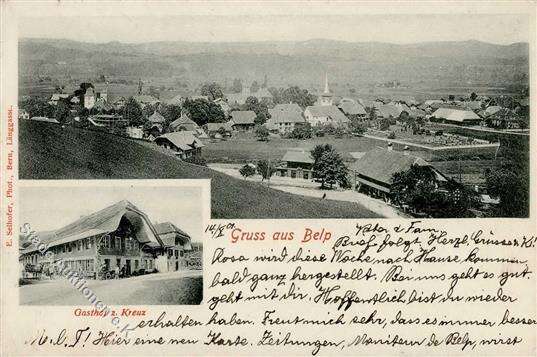 E. Selhofer, Phot., Bern, Länggass.
14/X 01
Vater u. Fam.
Gruss aus Belp
Brief folgt. Herzl. Grüsse
Rosa wird diese Woche nach Hause kommen
bald ganz hergestellt. Bei uns geht es gut.
geht mit dir. Hoffentlich bist du wieder
Gasthof z. Kreuz
erhalten haben. Freut mich sehr, dass es immer besser
M. l. T.! Hier eine neue Karte. Zeitungen, Moniteur de Belp, wirst